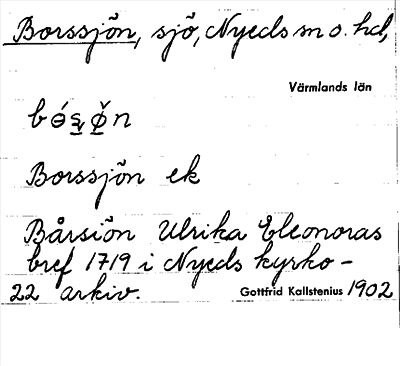 Borssjön, sjö, Nyeds sn o. hd,
Värmlands län
Borssjön ek
Bårsiön Ulrika Eleonoras
bref 1719 i Nyeds kyrko-
22 arkiv. Gottfrid Kallstenius 1902